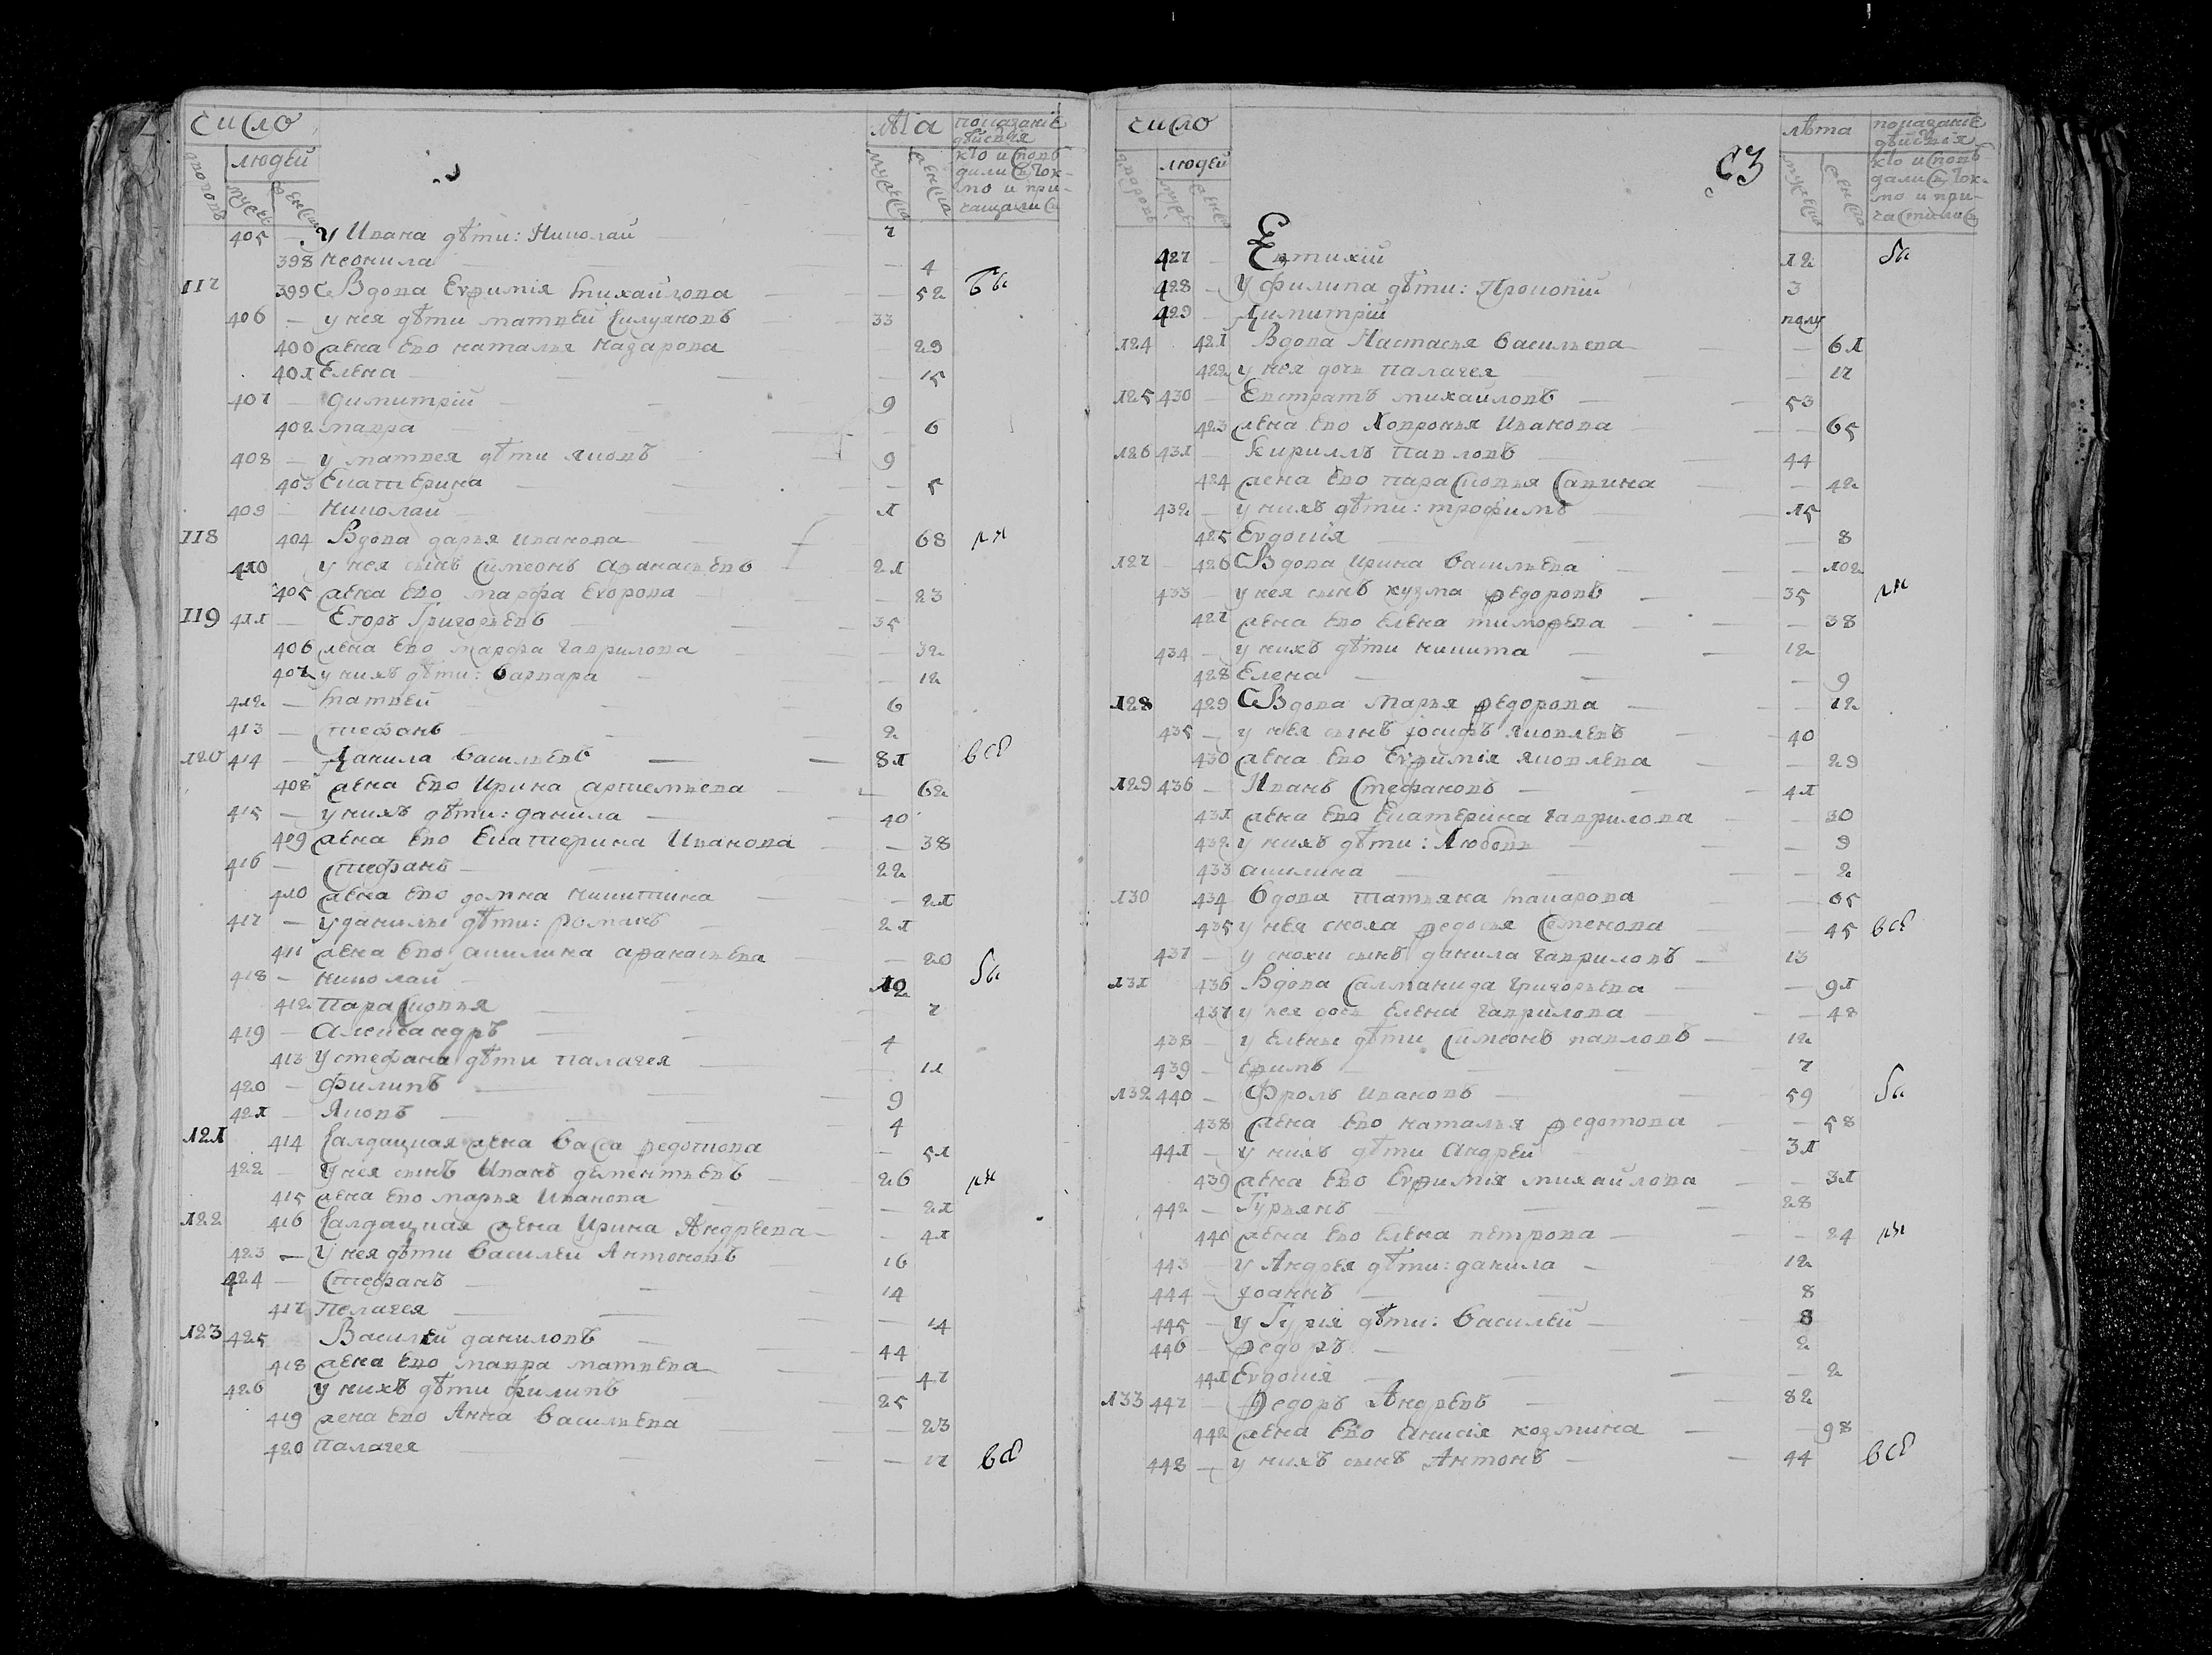 число
лѣта
показаніе дѣйствія
дворовъ
людей
мужес
женска
мужеска
женска
кто исповѣдали
405 — у Ивана дѣти: Николай — 7
398 неонила — 4
117 399 Вдова Евфимія михайлова — 52 бы
406 — у нея дѣти матвей Силуяновъ — 33
400 жена ево наталья назарова — 29
401 Елена — 15
407 — димитрій — 9
402 мавра — 6
408 — у матвея дѣти яковъ — 9
403 Екатерина — 5
409 — николай — 1
118 404 Вдова дарья иванова — 68
410 у нея сынъ Симеонъ афанасьевъ — 21
405 жена ево марфа Егорова — 23
119 411 — Егоръ Григорьевъ — 35
406 жена ево марфа гаврилова — 32
407 у нихъ дѣти: варвара — 12
412 — матвей — 6
413 — стефанъ — 2
120 414 — Данила васильевъ — 81 всѣ
408 жена ево Ирина артемьева — 62
415 — у нихъ дѣти: данила — 40
409 жена ево Екатерина Иванова — 38
416 — стефанъ — 22
410 жена ево домна никитина — 21
417 — у данилы дѣти: романъ — 21
411 жена ево акилина афанасьева — 20
418 — николай — 12 бы
412 Парасковья — 7
419 — Александръ — 4
413 у стефана дѣти палагея — 11
420 — филипъ — 9
421 — Яковъ — 4
121 414 Салдацкая жена васса федотова — 51
422 — у нея сынъ Иванъ дементьевъ — 26
415 жена ево марья Иванова — 21
122 416 Салдацкая жена Ирина Андреева — 41
423 — у нея дѣти василей Антоновъ — 16
424 — Стефанъ — 14
417 Пелагея — 14
123 425 Василей даниловъ — 44
418 жена ево мавра матвеева — 47
426 у нихъ дѣти филипъ — 25
419 жена ево Анна васильева — 23
420 палагея — 17 всѣ
число
сз
лѣта
показаніе дѣйствія
дворовъ
людей
мужес
женс
мужеска
женска
кто исповѣдали
427 — Евтихій — 12 бы
428 — У филипа дѣти: Прокопій — 3
429 — Димитрій — полу
124 421 Вдова Настасья васильева — 61
422 у нея дочь палагея — 17
125 430 — Евстратъ михайловъ — 53
423 жена ево Ховронья Иванова — 65
126 431 — Кириллъ павловъ — 44
424 жена ево парасковья Савина — 42
432 — у нихъ дѣти: трофимъ — 15
425 Евдокія — 8
127 426 Вдова ирина васильева — 102
433 — у нея сынъ кузма федоровъ — 35
427 жена ево елена тимофева — 38
434 — у нихъ дѣти никита — 12
428 Елена — 9
128 429 Вдова марья федорова — 12
435 — у нея сынъ іосифъ яковлевъ — 40
430 жена ево Евфимія яковлева — 29
129 436 — Иванъ Стефановъ — 41
431 жена ево Екатерина гаврилова — 30
432 у нихъ дѣти: Любовь — 9
433 акилина — 2
130 434 вдова татьяна макарова — 65
435 у нея сноха федосья Семенова — 45 всѣ
437 — у снохи сынъ данила гавриловъ — 13
131 436 Вдова Салманида григорьева — 91
437 у нея дочь Елена гаврилова — 48
438 — у Елены дѣти Симеонъ павловъ — 12
439 — ефимъ — 7
132 440 — Фролъ ивановъ — 59 бы
438 жена ево наталья федотова — 58
441 — у нихъ дѣти Андрей — 31
439 жена ево Евфимія михайлова — 31
442 — Гурьянъ — 28
440 жена ево елена петрова — 24
443 — у Андрея дѣти: данила — 12
444 — іоаннъ — 8
445 — у Гурія дѣти: василей — 8
446 — федоръ — 2
441 Евдокія — 2
133 447 — Федоръ Андреевъ — 82
442 жена ево анисія козмина — 98
448 — у нихъ сынъ Антонъ — 44 всѣ